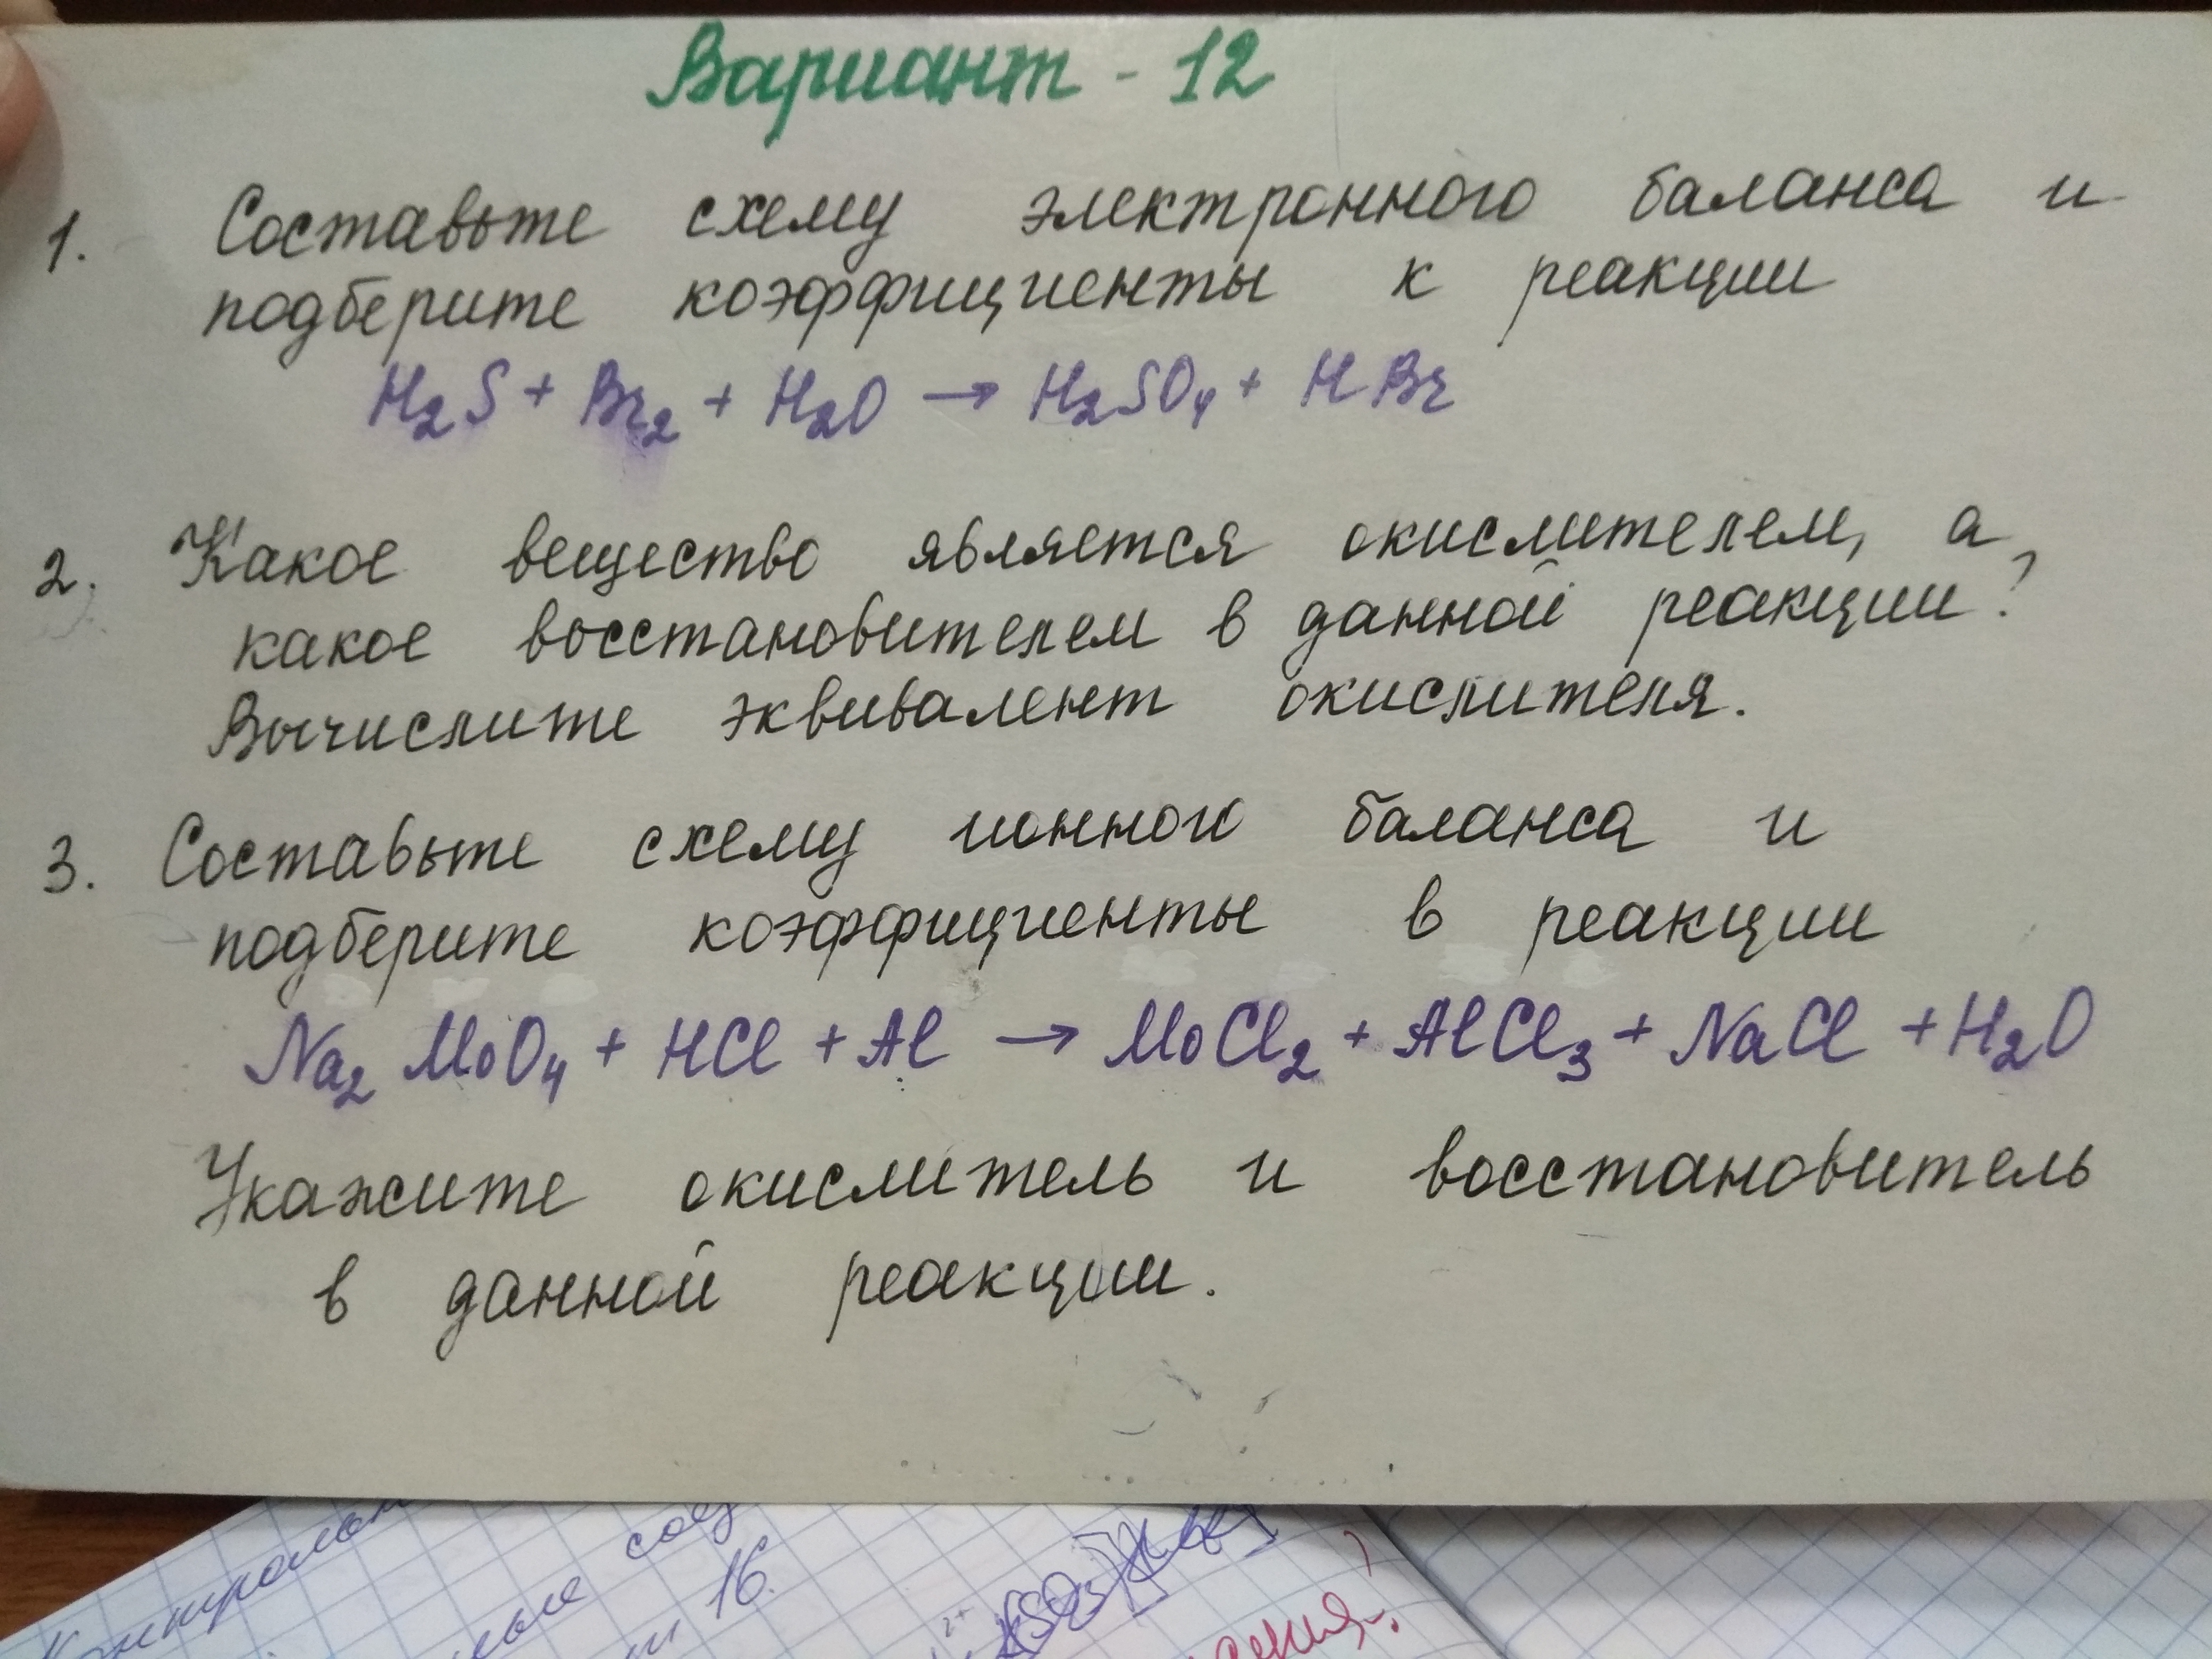 Вариант - 12
1. Составьте схему электронного баланса и
подберите коэффициенты к реакции
H₂S + Br₂ + H₂O → H₂SO₄ + HBr
2. Какое вещество является окислителем, а
какое восстановителем в данной реакции?
Вычислите эквивалент окислителя.
3. Составьте схему ионного баланса и
подберите коэффициенты в реакции
Na₂MoO₄ + HCl + Al → MoCl₂ + AlCl₃ + NaCl + H₂O
Укажите окислитель и восстановитель
в данной реакции.
16.